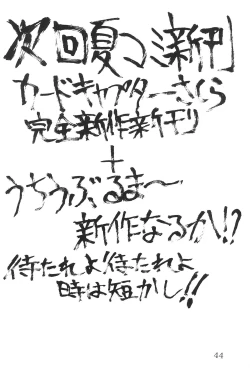 次回夏コミ新刊
カードキャプターさくら
完全新作新刊
+
うちうぶるま〜
新作なるか!?
待たれよ!待たれよ
時は短かし!!
44